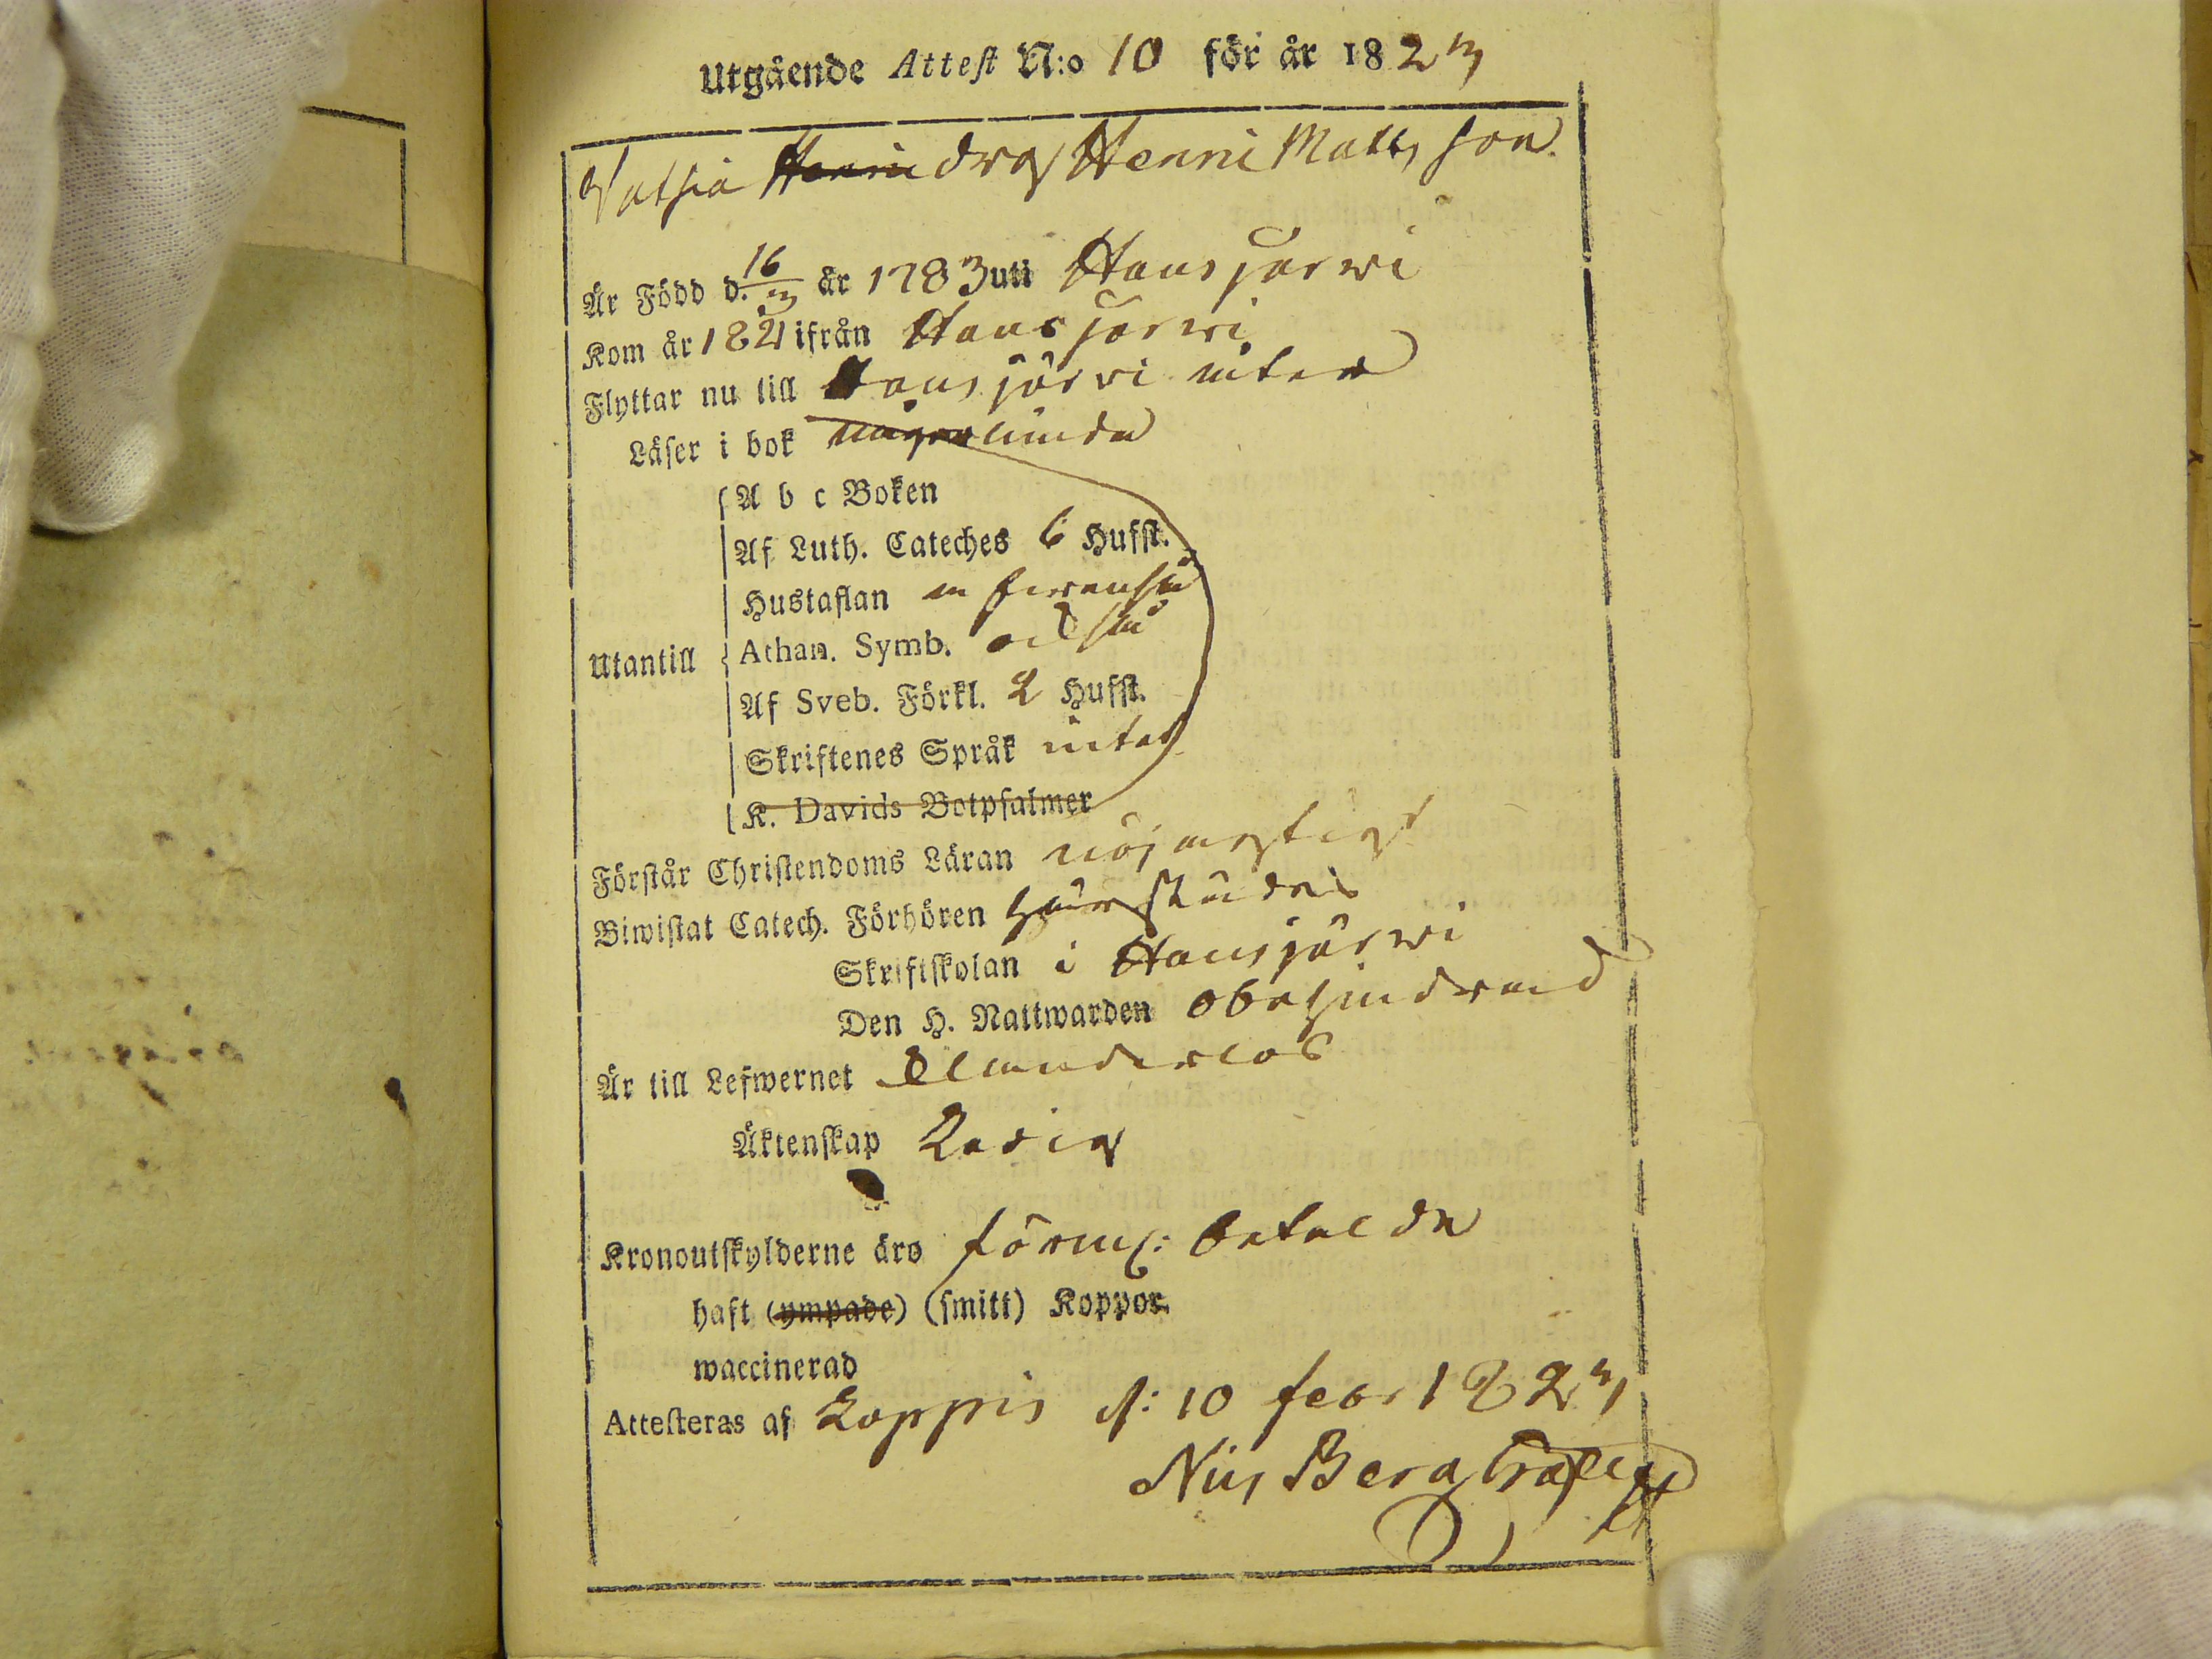 Utgående Attest N:o 10 för år 1823
drg Henni Matts son
Är Född d. 16/3 år 1783 uti Hausjärwi
Kom år 1821 ifrån Hausjärwi
Flyttar nu till Hausjärvi
Läser i bok
A b c Boken
Af Luth. Cateches 6 Hufst.
Hustaflan
Utantill Athan. Symb.
Af Sveb. Förkl. 2 Hufst.
Skriftenes Språk intet
K. Davids Botpsalmer
Förstår Christendoms Läran nöjagtigt
Biwistat Catech. Förhören
Skriftskolan i Hausjärwi
Den H. Nattwarden obehindrad
Är till Lefwernet Klanderlös
Äktenskap Ledig
Kronoutskylderne äro förmgl: betalde
haft (ympade) (smitt) Koppor.
waccinerad
Attesteras af Loppis d: 10 febr 1823
Nils Bergh